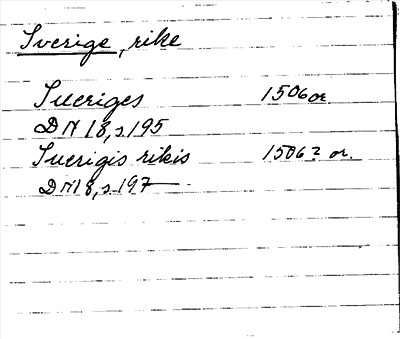 Sverige, rike
Sueriges 1506 or.
DN 18, s 195
Suerigis rikis 1506? or.
DN 18, s 197